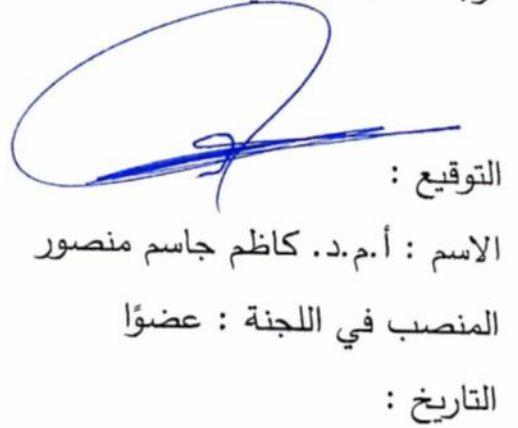 التوقيع :
الاسم : أ.م.د. كاظم جاسم منصور
المنصب في اللجنة : عضوًا
التاريخ :